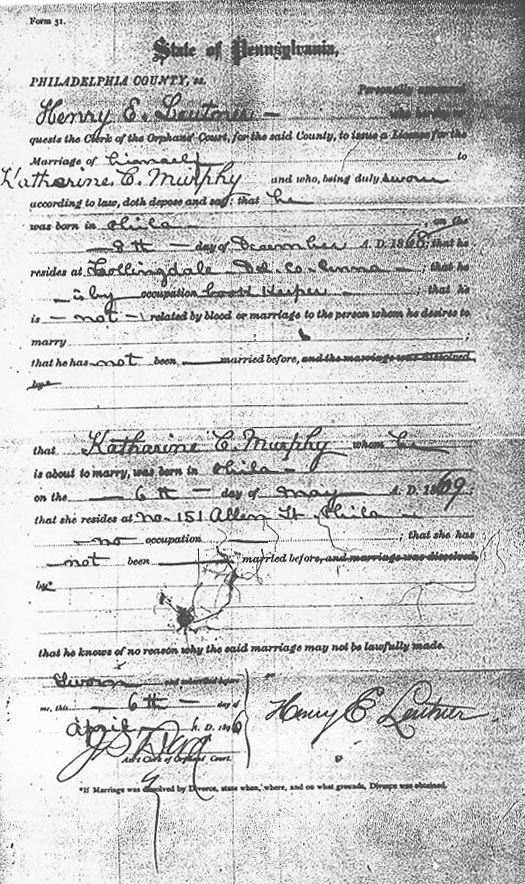 Form 51.
State of Pennsylvania,
PHILADELPHIA COUNTY, ss.
Personally appeared
Henry E. Leutner —
quests the Clerk of the Orphans' Court, for the said County, to issue a License for the
Marriage of himself to
Katharine C. Murphy and who, being duly sworn
according to law, doth depose and say: that he
was born in Phila — , on the
— 8th — day of December A. D. 1868; that he
resides at Collingdale Del. Co. Penna — ; that he
— is by occupation Book Keeper — ; that he
is — not — related by blood or marriage to the person whom he desires to
marry ;
that he has not been married before, and the marriage was dissolved
by*
that Katharine C. Murphy whom he
is about to marry, was born in Phila —
on the — 6th — day of May A. D. 1869;
that she resides at No. 151 Allen St. Phila —
— no occupation ; that she has
— not been married before, and marriage was dissolved,
by*
that he knows of no reason why the said marriage may not be lawfully made.
Sworn and subscribed before
me, this — 6th — day of
April A. D. 1896
Henry E Leutner.
Ass't Clerk of Orphans' Court.
*If Marriage was dissolved by Divorce, state when, where, and on what grounds, Divorce was obtained.